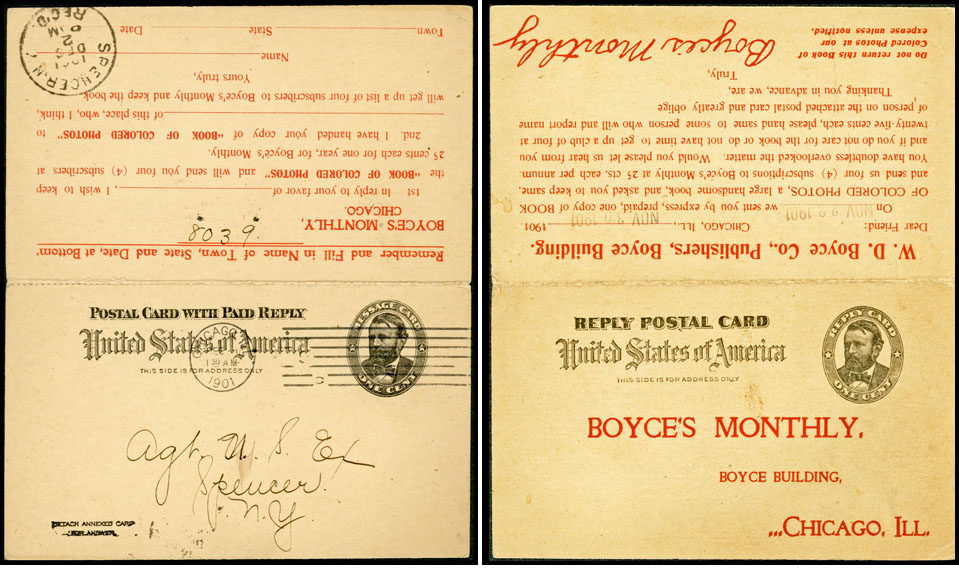 Remember and Fill in Name of Town, State and Date, at Bottom.
8039.
BOYCE'S MONTHLY,
CHICAGO.
1st In reply to your favor of, I wish to keep
the "BOOK OF COLORED PHOTOS" and will send you four (4) subscribers at
25 cents each for one year, for Boyce's Monthly.
2nd. I have handed your copy of "BOOK OF COLORED PHOTOS" to
of this place, who, I think,
will get up a list of four subscribers to Boyce's Monthly and keep the book
Yours truly,
Name
Town State Date
SPENCER, N.Y.
DEC
2
1901
REC'D.
POSTAL CARD WITH PAID REPLY
United States of America
THIS SIDE IS FOR ADDRESS ONLY
MESSAGE CARD
ONE CENT
CHICAGO
1 30 AM
1901
Agt. U. S. Ex
Spencer.
N.Y.
DETACH ANNEXED CARD
FOR ANSWER
W. D. Boyce Co., Publishers, Boyce Building.
Dear Friend: CHICAGO, ILL. NOV 30 1901 1901.
On NOV 29 1901 we sent you by express, prepaid, one copy of BOOK
OF COLORED PHOTOS, a large handsome book, and asked you to keep same,
and send us four (4) subscriptions to Boyce's Monthly at 25 cts. each per annum.
You have doubtless overlooked the matter. Would you please let us hear from you
and if you do not care for the book or do not have time to get up a club of four at
twenty-five cents each, please hand same to some person who will and report name
of person on the attached postal card and greatly oblige
Thanking you in advance, we are,
Truly,
Boyce's Monthly
Do not return this Book of
Colored Photos at our
expense unless notified.
REPLY POSTAL CARD
United States of America
THIS SIDE IS FOR ADDRESS ONLY
REPLY CARD
ONE CENT
BOYCE'S MONTHLY,
BOYCE BUILDING,
...CHICAGO, ILL.